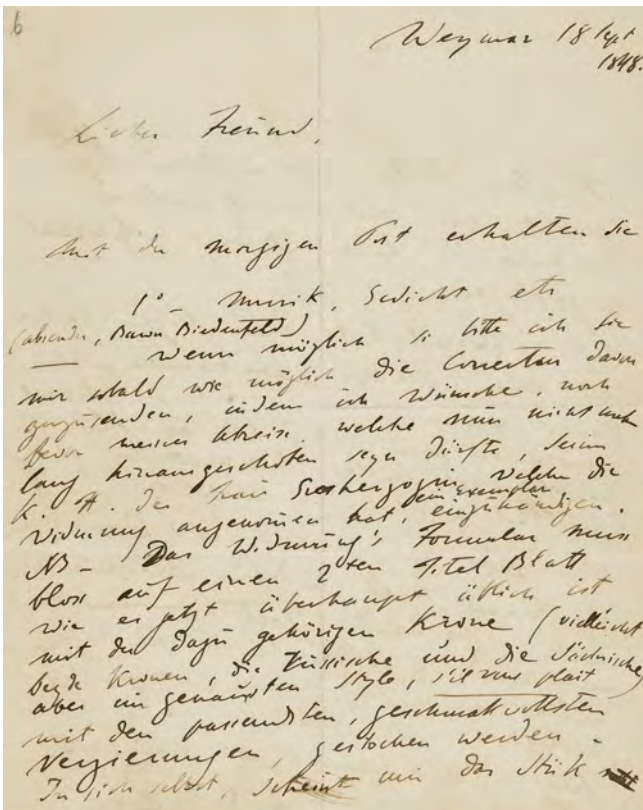 6
Weymar 18 Sept
1848.
Lieber Freund,
Mit der morgigen Post erhalten Sie
1° – Musik, Gedicht etc
(absender, Baron Biedenfeld)
Wenn möglich so bitte ich Sie
mir sobald wie möglich die Correcten davon
zuzusenden, indem ich wünsche, noch
bevor meiner Abreise welche nun nicht mehr
lang hinausgeschoben seyn dürfte,
K. H. der Frau Grosherzogin, welche die
ein Exemplar
Widmung angenomen hat, einzuhändigen.
NB – Das Widmung's Formular muss
blos auf einen 2ten Titel Blatt
wie es jetzt überhaupt üblich ist
mit der dazu gehörigen Krone (vielleicht
beyde Kronen, die Russische und die Sächsische)
aber im genausten Style, s'il vous plait
mit den passendsten, geschmakvollsten
Verzierungen, gestochen werden –
In sich selbst, scheint mir das Stük